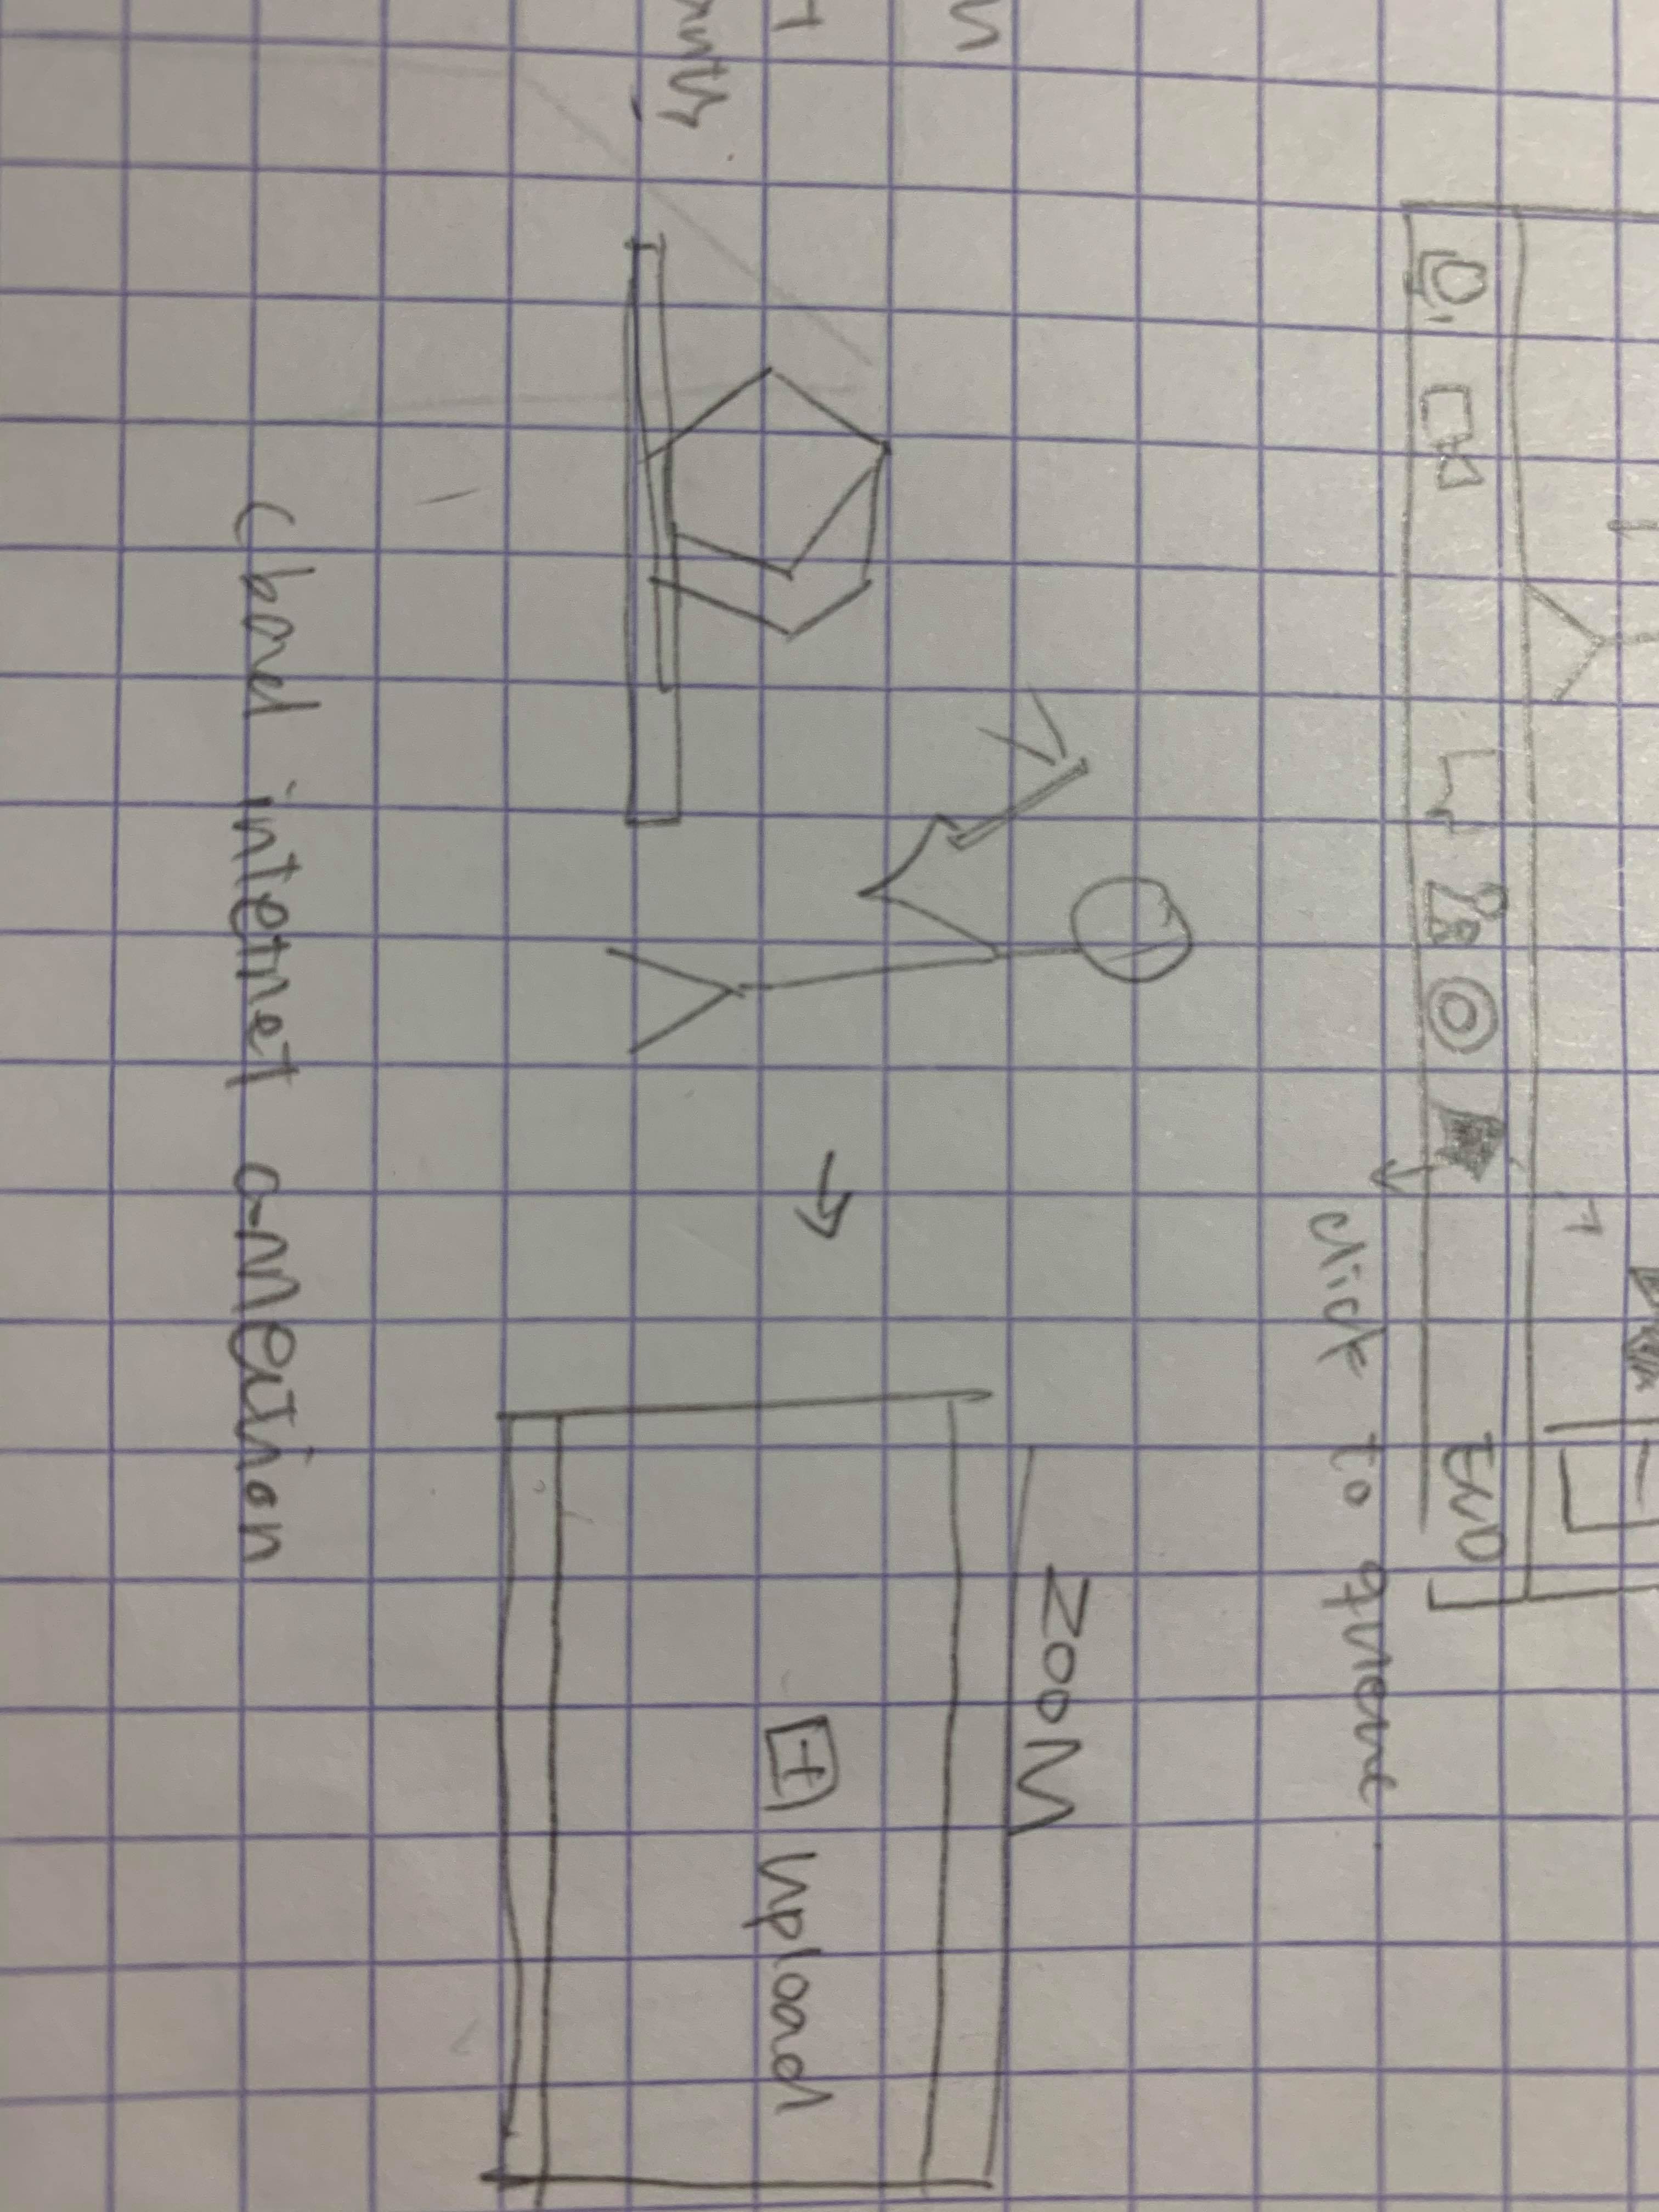 END
click to queue
ZOOM
+ Upload
(bad internet connection